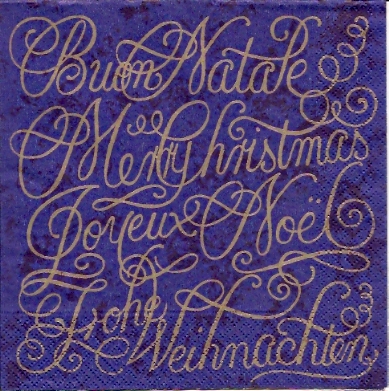 Buon Natale
Merry Christmas
Joyeux Noël
Frohe
Weihnachten